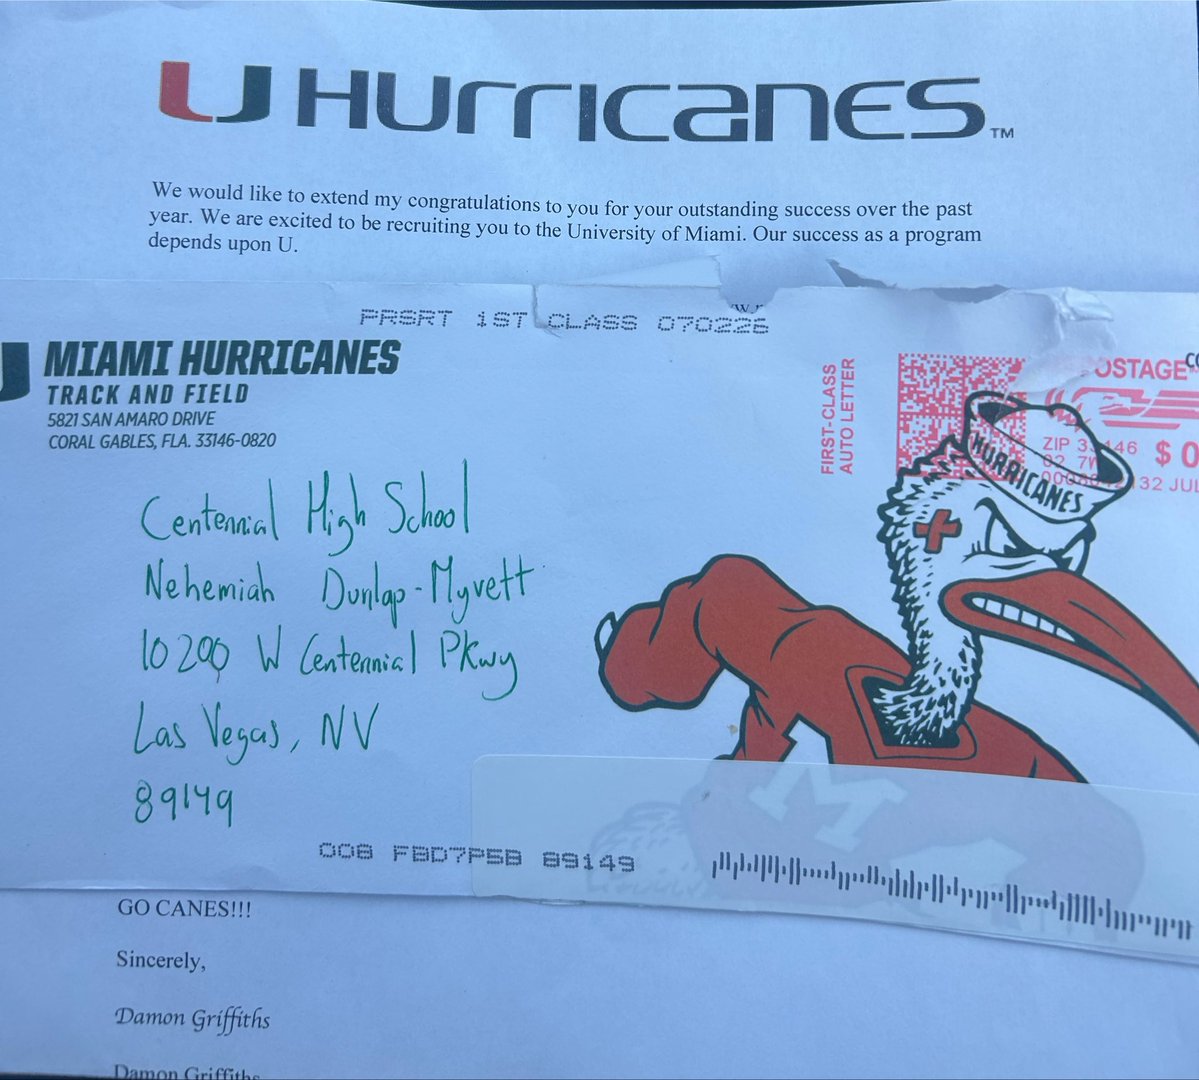 U HURRICANES TM
We would like to extend my congratulations to you for your outstanding success over the past
year. We are excited to be recruiting you to the University of Miami. Our success as a program
depends upon U.
PRSRT 1ST CLASS 070226
MIAMI HURRICANES
TRACK AND FIELD
5821 SAN AMARO DRIVE
CORAL GABLES, FLA. 33146-0820
FIRST-CLASS
AUTO LETTER
POSTAGE
ZIP 33146
02 7W
$ 0
32 JUL
HURRICANES
Centennial High School
Nehemiah Dunlap-Myvett
10200 W Centennial Pkwy
Las Vegas, NV
89149
M
008 FBD7P5B 89149
GO CANES!!!
Sincerely,
Damon Griffiths
Damon Griffiths